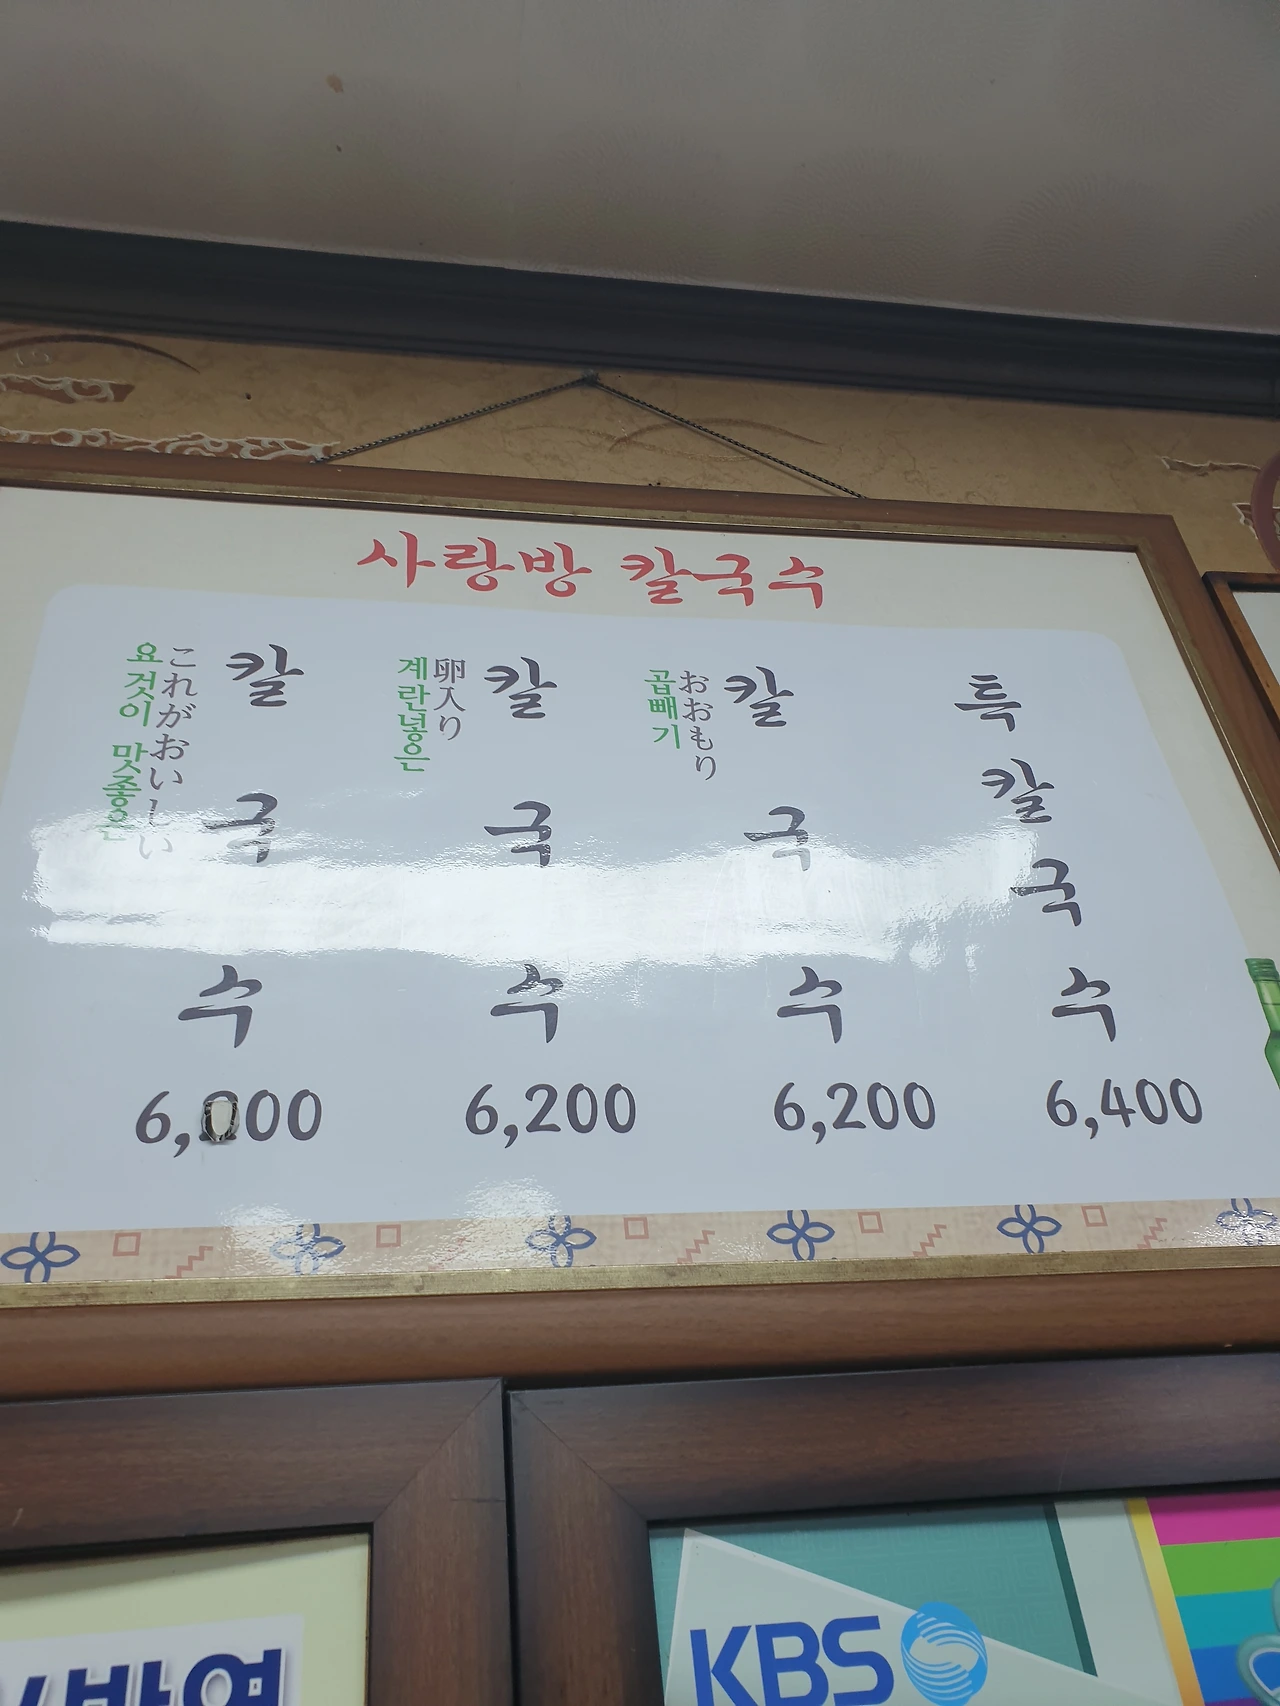 사랑방 칼국수
칼국수
これがおいしい
요것이 맛좋은
6,000
칼국수
卵入り
계란넣은
6,200
칼국수
おおもり
곱빼기
6,200
특칼국수
6,400
방영
KBS